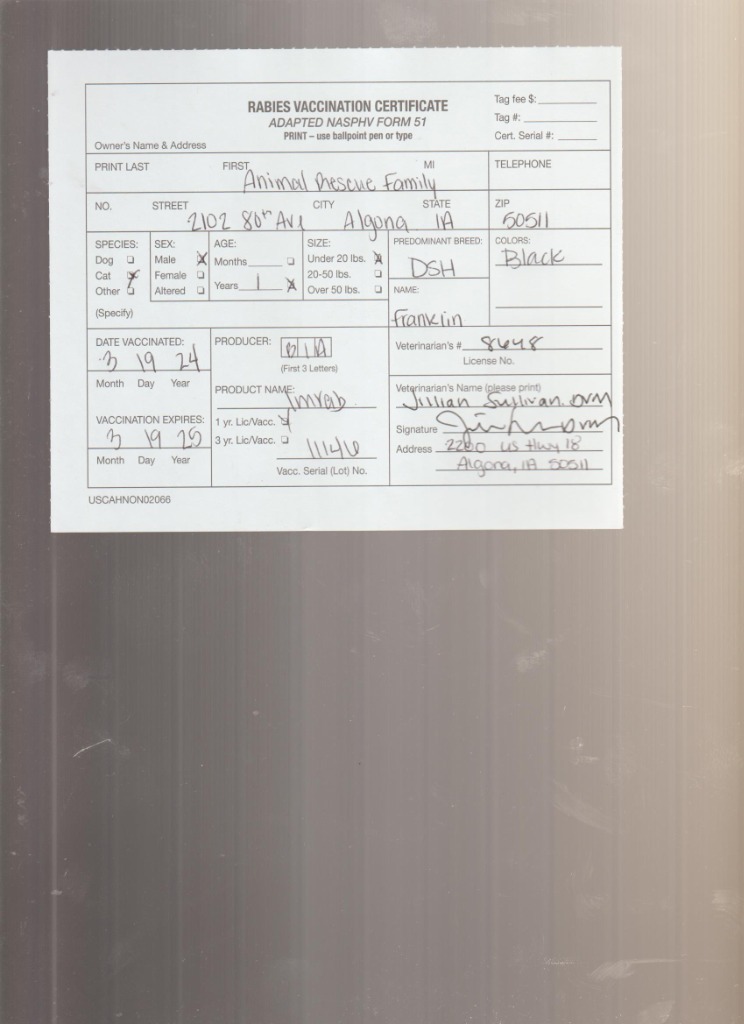 RABIES VACCINATION CERTIFICATE
ADAPTED NASPHV FORM 51
PRINT – use ballpoint pen or type
Tag fee $:
Tag #:
Cert. Serial #:
Owner's Name & Address
PRINT LAST FIRST MI TELEPHONE
Animal Rescue Family
NO. STREET CITY STATE ZIP
2102 80th Ave Algona IA 50511
SPECIES: SEX: AGE: SIZE: PREDOMINANT BREED: COLORS:
Dog ☐ Male ☒ Months ☐ Under 20 lbs. ☒ DSH Black
Cat ☒ Female ☐ Years 1 ☒ 20-50 lbs. ☐
Other ☐ Altered ☐ Over 50 lbs. ☐ NAME:
(Specify) Franklin
DATE VACCINATED: PRODUCER: BIA Veterinarian's # 8648
3 19 24 (First 3 Letters) License No.
Month Day Year
PRODUCT NAME: Imrab Veterinarian's Name (please print)
Jillian Sullivan DVM
VACCINATION EXPIRES: 1 yr. Lic/Vacc. ☒ Signature DVM
3 19 25 3 yr. Lic/Vacc. ☐ Address 2280 US Hwy 18
11146 Algona, IA 50511
Month Day Year Vacc. Serial (Lot) No.
USCAHNON02066